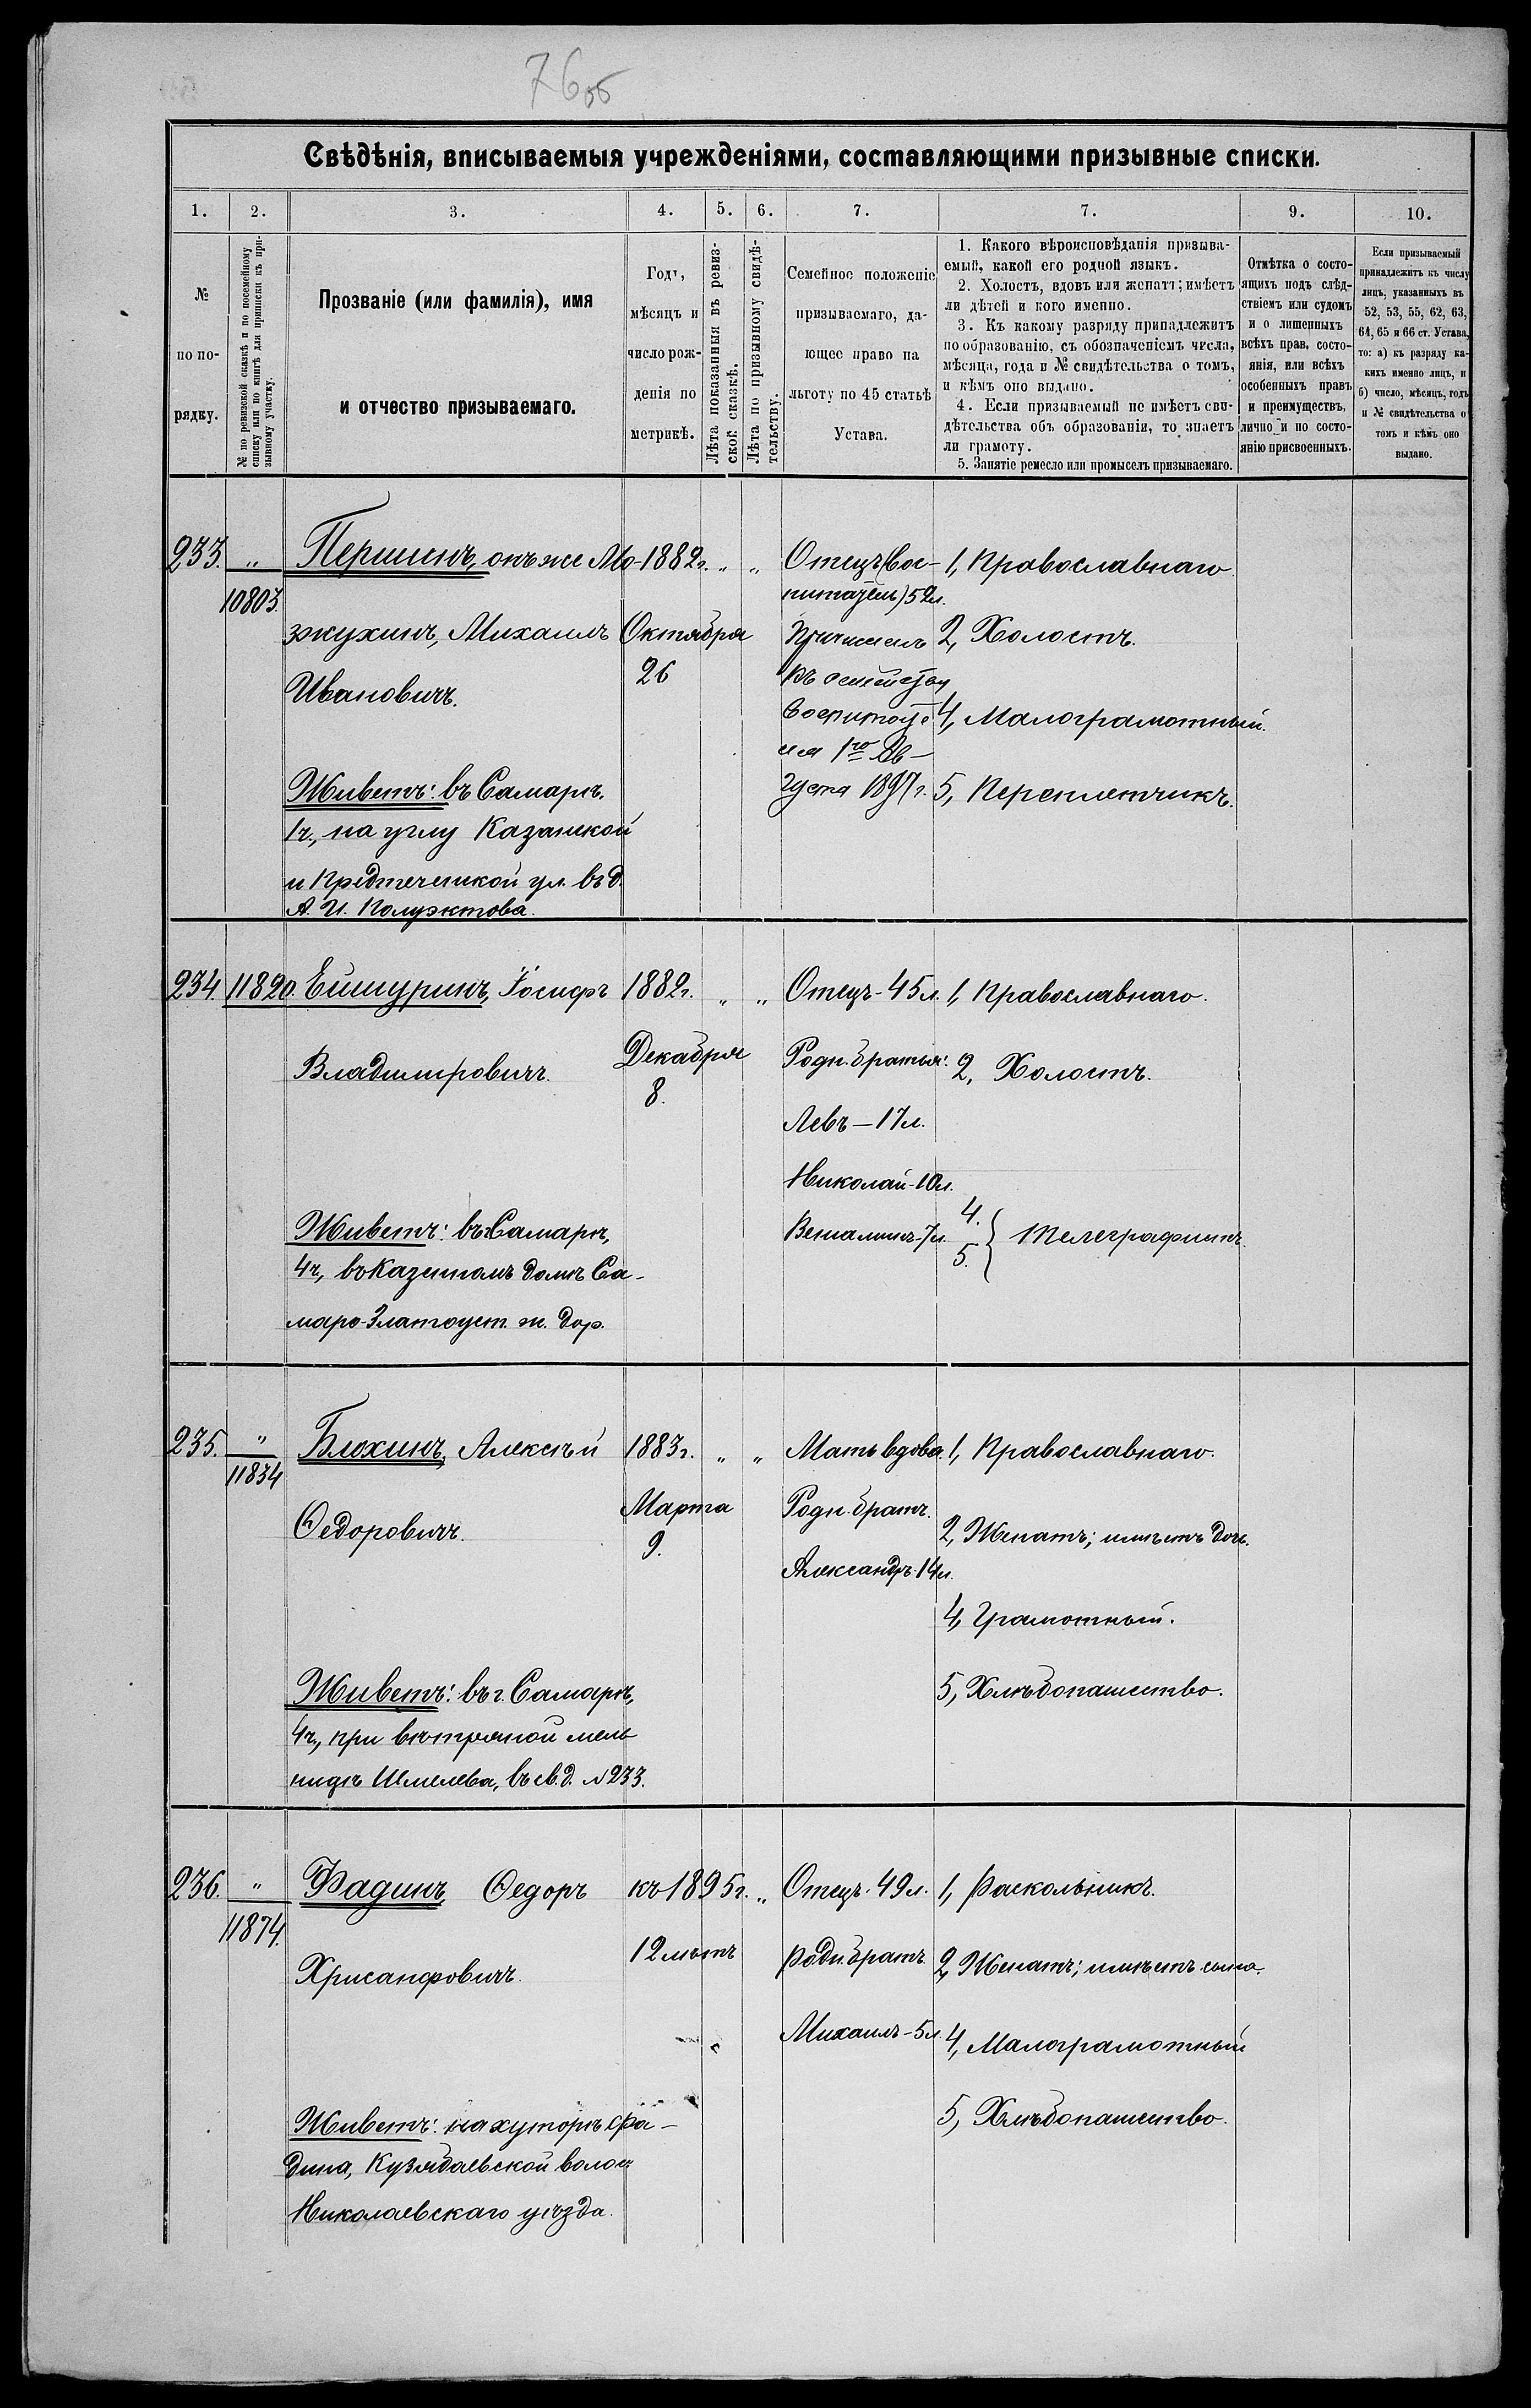 76об
Свѣдѣнія, вписываемыя учрежденіями, составляющими призывные списки.
1. 2. 3. 4. 5. 6. 7. 7. 9. 10.
№ по порядку.
№ по ревизской сказкѣ и по посемейному списку или по книгѣ для приписки къ призывному участку.
Прозваніе (или фамилія), имя
и отчество призываемаго.
Годъ,
мѣсяцъ и
число рож-
денія по
метрикѣ.
Лѣта показанныя въ ревиз-
ской сказкѣ.
Лѣта по призывному свидѣ-
тельству.
Семейное положеніе
призываемаго, да-
ющее право на
льготу по 45 статьѣ
Устава.
1. Какого вѣроисповѣданія призыва-
емый, какой его родной языкъ.
2. Холостъ, вдовъ или женатъ; имѣетъ
ли дѣтей и кого именно.
3. Къ какому разряду принадлежитъ
по образованію, съ обозначеніемъ числа,
мѣсяца, года и № свидѣтельства о томъ,
и кѣмъ оно выдано.
4. Если призываемый не имѣетъ сви-
дѣтельства объ образованіи, то знаетъ
ли грамоту.
5. Занятіе ремесло или промыселъ призываемаго.
Отмѣтка о состо-
ящихъ подъ слѣд-
ствіемъ или судомъ
и о лишенныхъ
всѣхъ прав, состо-
янія, или всѣхъ
особенныхъ правъ
и преимуществъ,
лично и по состо-
янію присвоенныхъ.
Если призываемый
принадлежитъ къ числу
лицъ, указанныхъ въ
52, 53, 55, 62, 63,
64, 65 и 66 ст. Устава,
то: а) къ разряду ка-
кихъ именно лицъ, и
б) число, мѣсяцъ, годъ
и № свидѣтельства о
томъ и кѣмъ оно
выдано.
233. " 10803.
Першинъ, онъ же Мо-
зжухинъ, Михаилъ
Ивановичъ.
Живетъ: въ Самарѣ,
1ч., на углу Казанской
и Предтеченской ул. въ д.
А. И. Полуэктова.
1882г. " "
Октября
26
Отецъ (вос-
питатель) 52л.
Причисленъ
къ семейству
воспитате
ля 1го Ав-
густа 1897г.
1, Православнаго
2, Холостъ.
4, Малограмотный.
5, Переплетчикъ.
234. 11820.
Ейшуринъ, Іосифъ
Владимировичъ.
Живетъ: въ Самарѣ,
4ч, въ Казенномъ домѣ Са-
маро-Златоуст. ж. дор.
1882г. " "
Декабря
8.
Отецъ - 45л.
Родн. братья:
Левъ - 17л.
Николай - 10л.
Веніаминъ - 7л.
1, Православнаго.
2, Холостъ.
4.
5. } Телеграфистъ.
235. " 11834
Блохинъ, Алексѣй
Ѳедоровичъ.
Живетъ: въ г. Самарѣ,
4ч., при вѣтряной мель
ницѣ Шмелева, въ св. д. №233.
1883г. " "
Марта
9.
Мать вдова.
Родн. братъ.
Александръ 14л.
1, Православнаго.
2, Женатъ; имѣетъ дочь.
4, Грамотный.
5, Хлѣбопашество.
236. " 11874.
Фадинъ, Ѳедоръ
Хрисанфовичъ.
Живетъ: на хуторѣ Фа-
дина, Кузябаевской волос.
Николаевскаго уѣзда.
къ 1895г. "
12 лѣтъ
Отецъ - 49л.
Родн. братъ
Михаилъ - 5л.
1, Раскольникъ.
2, Женатъ; имѣетъ сына.
4, Малограмотный
5, Хлѣбопашество.